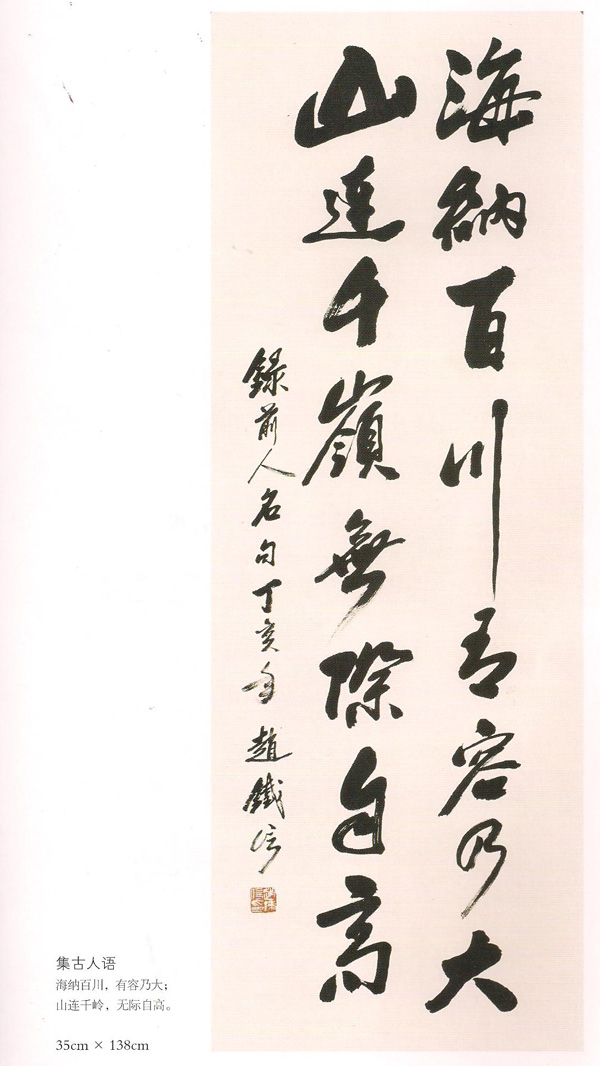 海納百川有容乃大
山連千嶺無際自高
録前人名句丁亥年趙鐵信
集古人语
海纳百川，有容乃大；
山连千岭，无际自高。
35cm × 138cm